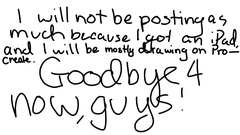 I will not be posting as
much because I got an iPad,
and I will be mostly drawing on Pro-
create.
Goodbye 4
now, guys!